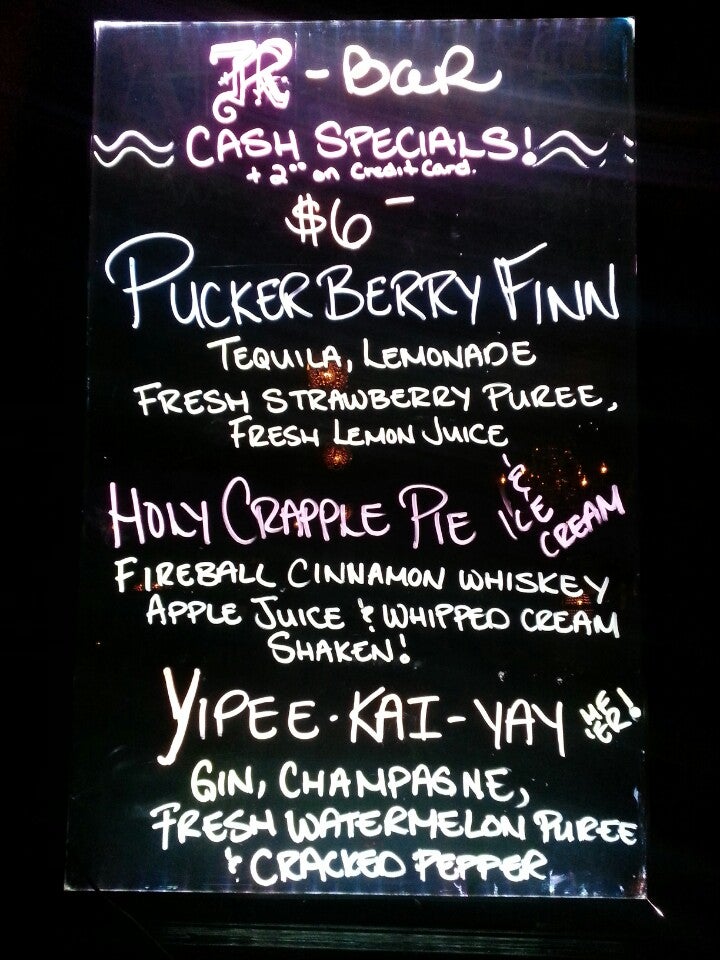 R-BAR
CASH SPECIALS!
+ 2°° on Credit Card.
$6-
PUCKER BERRY FINN
TEQUILA, LEMONADE
FRESH STRAWBERRY PUREE,
FRESH LEMON JUICE
HOLY CRAPPLE PIE & ICE CREAM
FIREBALL CINNAMON WHISKEY
APPLE JUICE & WHIPPED CREAM
SHAKEN!
YIPEE·KAI-YAY
GIN, CHAMPAGNE,
FRESH WATERMELON PUREE
& CRACKED PEPPER